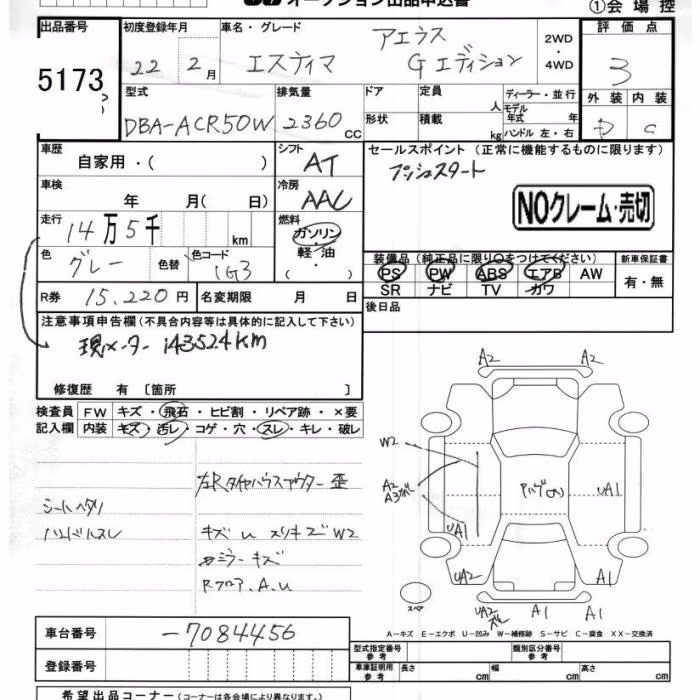 オークション出品申込書
①会場控
出品番号 初度登録年月 車名・グレード アエラス 2WD・4WD 評価点
5173 22 2月 エスティマ Gエディション 3
型式 排気量 ドア 定員 人 ディーラー・並行 外装 内装
DBA-ACR50W 2360cc 形状 積載 kg モデル年式 年 ハンドル 左・右 D C
車歴 自家用・( ) シフト AT セールスポイント (正常に機能するものに限ります)
プッシュスタート
車検 年 月( 日) 冷房 AAC NOクレーム・売切
走行 14万5千 km 燃料 ガソリン・軽油・
色 グレー 色替 色コード 1G3 装備品 (純正品に限り○をつけてください) 新車保証書
PS PW ABS エアB AW 有・無
SR ナビ TV カワ
R券 15,220円 名変期限 月 日 後日品
注意事項申告欄 (不具合内容等は具体的に記入して下さい)
現メーター 143524km
修復歴 有 〔箇所 〕
検査員 FW キズ・飛石・ヒビ割・リペア跡・×要
記入欄 内装 キズ・汚レ・コゲ・穴・スレ・キレ・破レ
左Rタイヤハウスアウター歪
シートヘタリ
ハンドルスレ
キズ U スリキズ W2
ミラーキズ
Rフロア.A.U
A2 A2
W2
A2
A3
UA1
UA1
UA2 A1
スペア
UA2 A1 A1
A－キズ E－エクボ U－凹み W－補修跡 S－サビ C－腐食 XX－交換済
車台番号 -7084456 型式指定番号 参考 類別区分番号 参考
登録番号 車庫証明用 参考 長さ cm 幅 cm 高さ cm
希望出品コーナー (コーナーは各会場により異なります。)